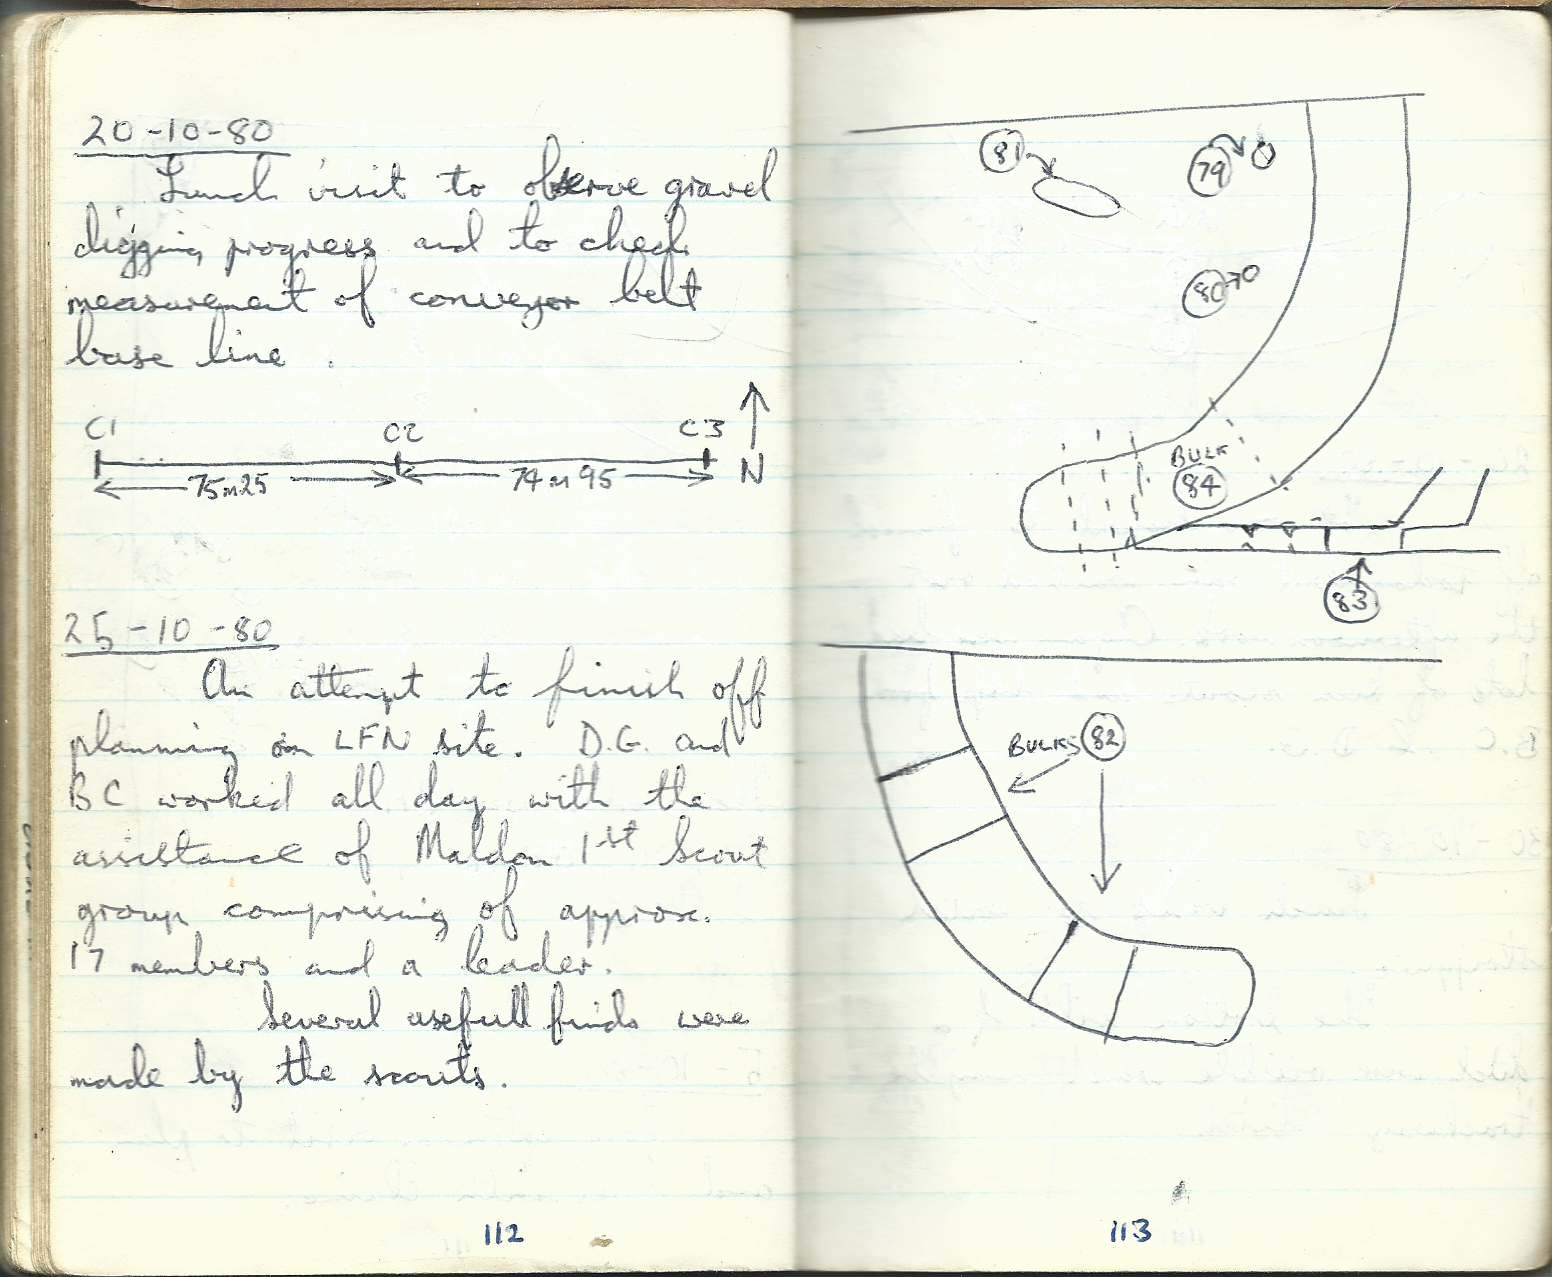 20-10-80
Lunch visit to observe gravel
digging progress and to check
measurement of conveyor belt
base line.
C1 C2 C3
75m25 74m95 N
25-10-80
An attempt to finish off
planning on LFN site. D.G. and
BC worked all day with the
assistance of Maldon 1st Scout
group comprising of approx.
17 members and a leader.
Several usefull finds were
made by the scouts.
112
81
79
80
BULK
84
83
BULKS 82
113